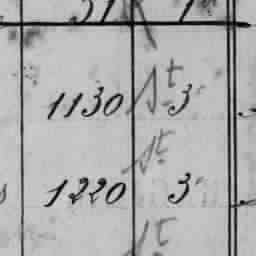 1130 St 3
St
1220 3
St